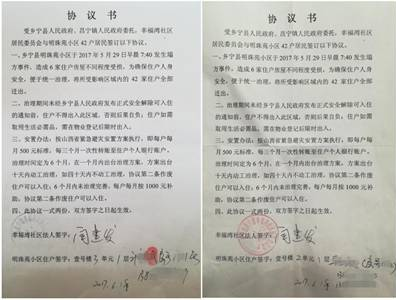 协 议 书
受乡宁县人民政府、昌宁镇人民政府委托，幸福湾社区
居民委员会与明珠苑小区 42 户居民签订以下协议。
一、乡宁县明珠苑小区于 2017 年 5 月 29 日早晨 7:40 发生塌
方事件，造成 6 家住户房屋不同程度受损，为确保住户人身
安全，便于统一治理，将所受影响区域内的 42 家住户全部
迁出。
二、治理期间未经乡宁县人民政府发布正式安全解除可入住
的通知前，住户不得出入此区域，否则后果自负；住户如需
取用生活必需品，需在物业登记后限时出入。
三、安置办法：按山西省紧急避灾安置方案执行，即每户每
月 500 元标准，每三个月一次性转账至住户个人银行账户。
治理时间定为 6 个月，在一个月内出台治理方案，方案出台
十天内动工治理，如四十天内不动工治理，协议第二条作废
住户可以入住；6 个月内未治理完善，每户每月按 1000 元补
助，协议第二条作废住户可以入住。
四、此协议一式两份，双方签字之日起生效。
幸福湾社区法人签字：闫建发
明珠苑小区住户签字：壹号楼 3 单元 1 层
2017.6.1
协 议 书
受乡宁县人民政府、昌宁镇人民政府委托，幸福湾社区
居民委员会与明珠苑小区 42 户居民签订以下协议。
一、乡宁县明珠苑小区于 2017 年 5 月 29 日早晨 7:40 发生塌
方事件，造成 6 家住户房屋不同程度受损，为确保住户人身
安全，便于统一治理，将所受影响区域内的 42 家住户全部
迁出。
二、治理期间未经乡宁县人民政府发布正式安全解除可入住
的通知前，住户不得出入此区域，否则后果自负；住户如需
取用生活必需品，需在物业登记后限时出入。
三、安置办法：按山西省紧急避灾安置方案执行，即每户每
月 500 元标准，每三个月一次性转账至住户个人银行账户。
治理时间定为 6 个月，在一个月内出台治理方案，方案出台
十天内动工治理，如四十天内不动工治理，协议第二条作废
住户可以入住；6 个月内未治理完善，每户每月按 1000 元补
助，协议第二条作废住户可以入住。
四、此协议一式两份，双方签字之日起生效。
幸福湾社区法人签字：闫建发
明珠苑小区住户签字：壹号楼 单元 1 层
2017.6.1